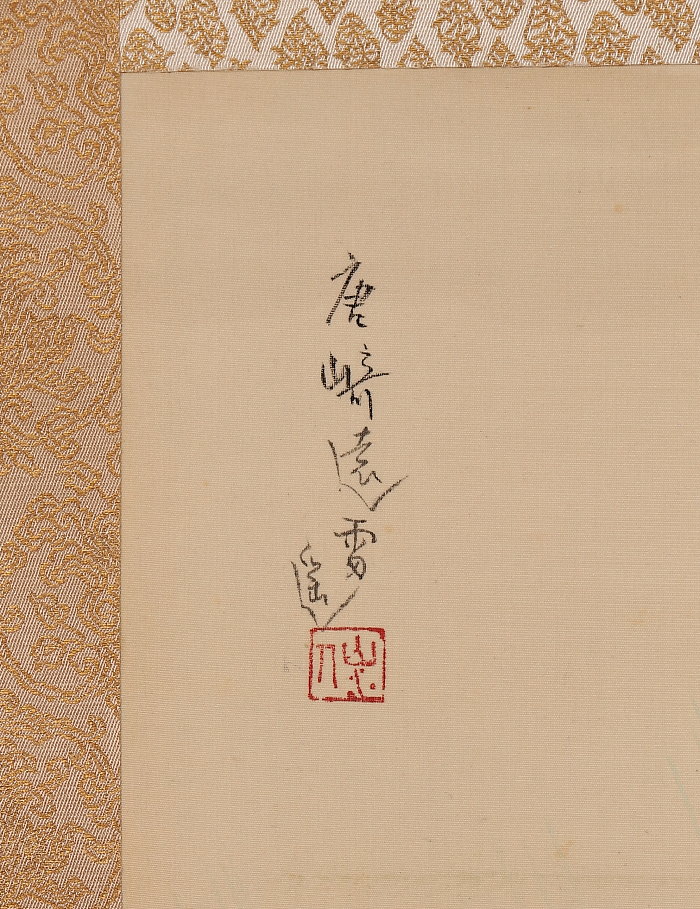 唐崎遠雪
遙